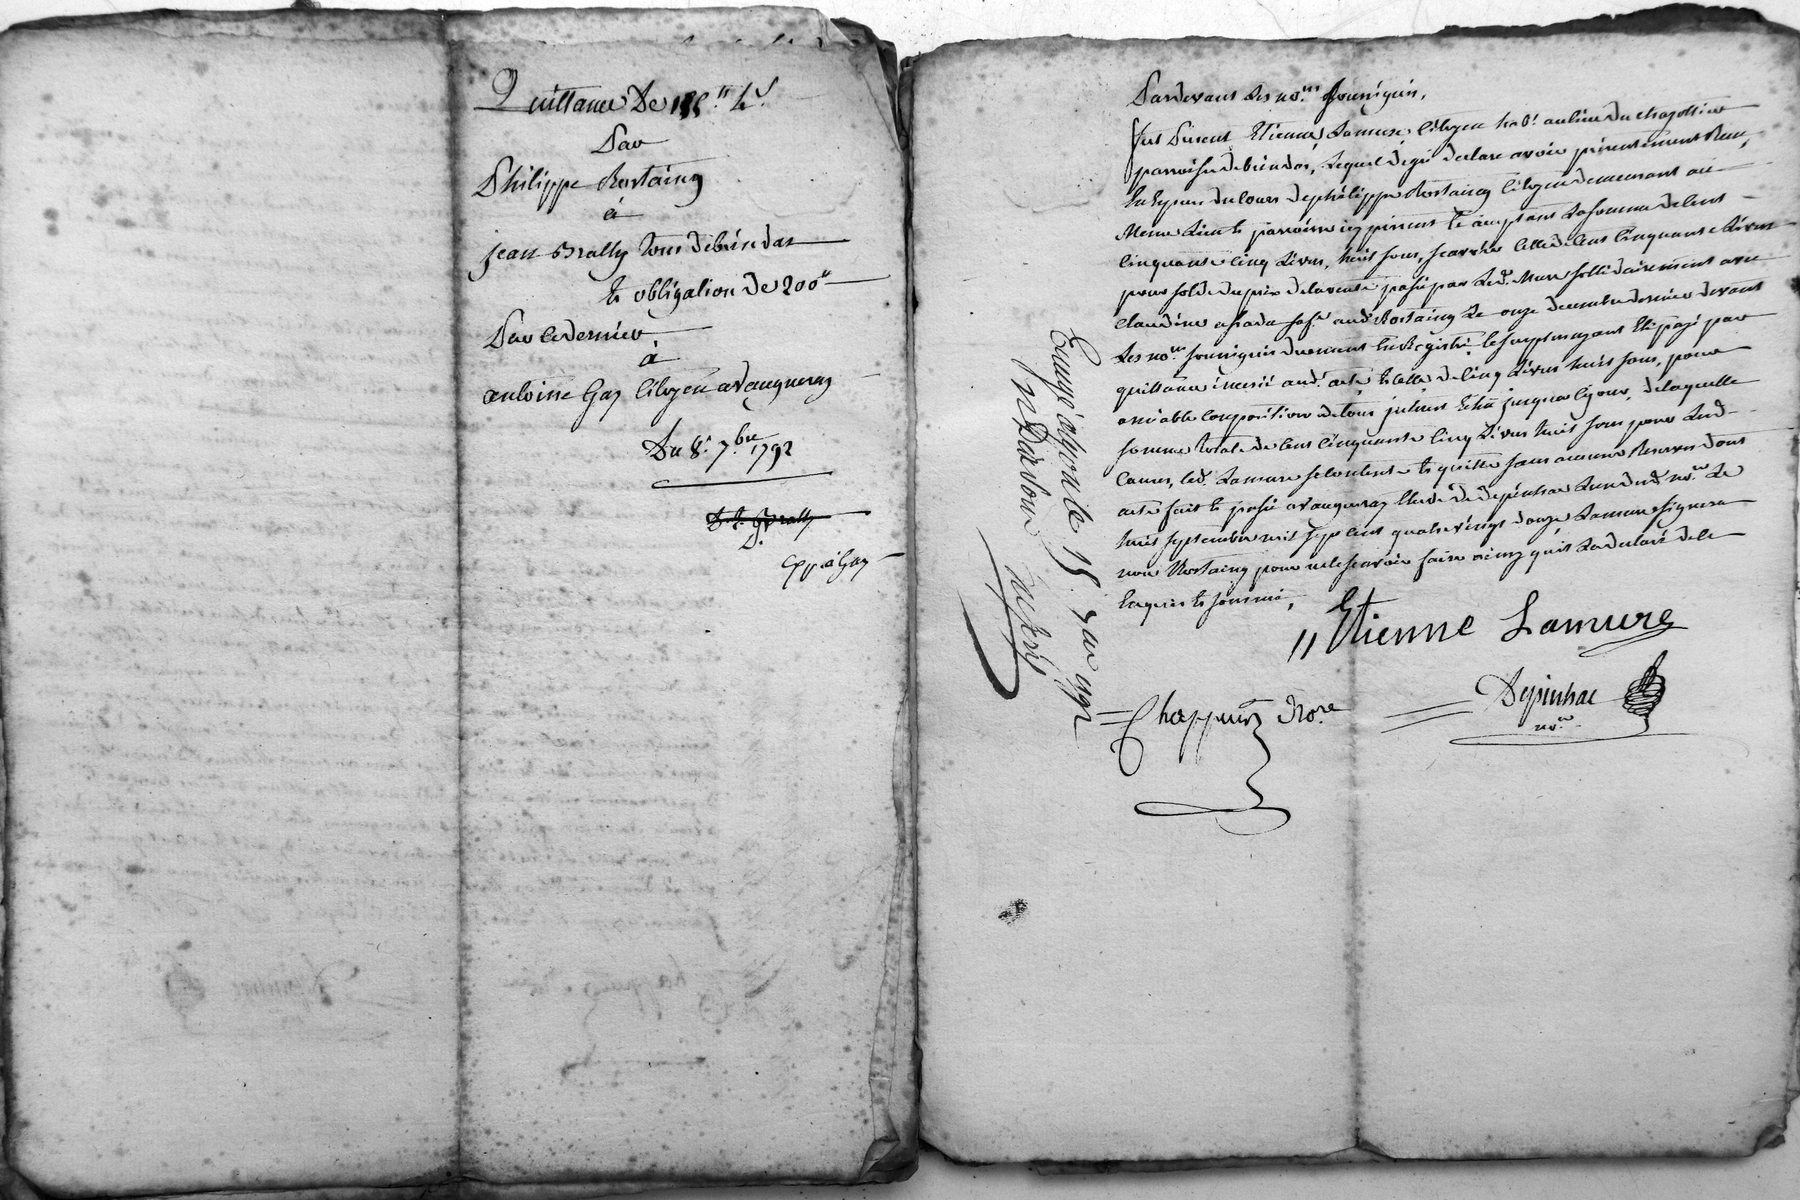 Quittance De 155.ʰ 4.ˢ
Par
Philippe Rostaing
à
jean Brally tous de brindas
Et obligation de 200ʰ
Par ce dernier
à
antoine Gay Citoyen a vaugneray
Du 8.e 7.bre 1792
Exp. à Gay
Pardevant Les no.res soussignés,
fut Présent Etienne Lamure, Citoyen hab.t au lieu du
paroisse de brindas, Lequel de gré declare avoir présentement Reçu,
En Especes du cours de philippe Rostaing Citoyen demeurant au
Meme Lieu et paroisse icy présent Et acceptant La somme de Cent
Cinquante Cinq Livres, huit sous, scavoir Celle de Cent Cinquante Livres
pour solde du prix de la vente passée par Led. Mure sollidairement avec
claudine sa f.e aud. Rostaing Le onze decembre dernier devant
Les no.res soussignés duement En Registré, Le surplus ayant Eté payé par
quittance inserée aud. acte Et Celle de Cinq Livres huit sous, pour
amiable Composition de tous interets Echus jusqu'a Ce jour, de laquelle
somme totale de Cent Cinquante Cinq Livres huit sous pour Lesd.
Causes, led. Lamure se Contente Et quitte sans aucune Reserve dont
acte fait Et passé a vaugneray Etude de Depinhac L'un desd. no.res Le
huit septembre mil sept Cent quatre vingt douze Lamure signera
non Rostaing pour ne le scavoir faire ainsy qu'il L'a declaré de ce
Enquis Et sommé,
Etienne Lamure
Chappuis No.re
Depinhac
no.re
Enregé a lyon le 15. 7bre 1792